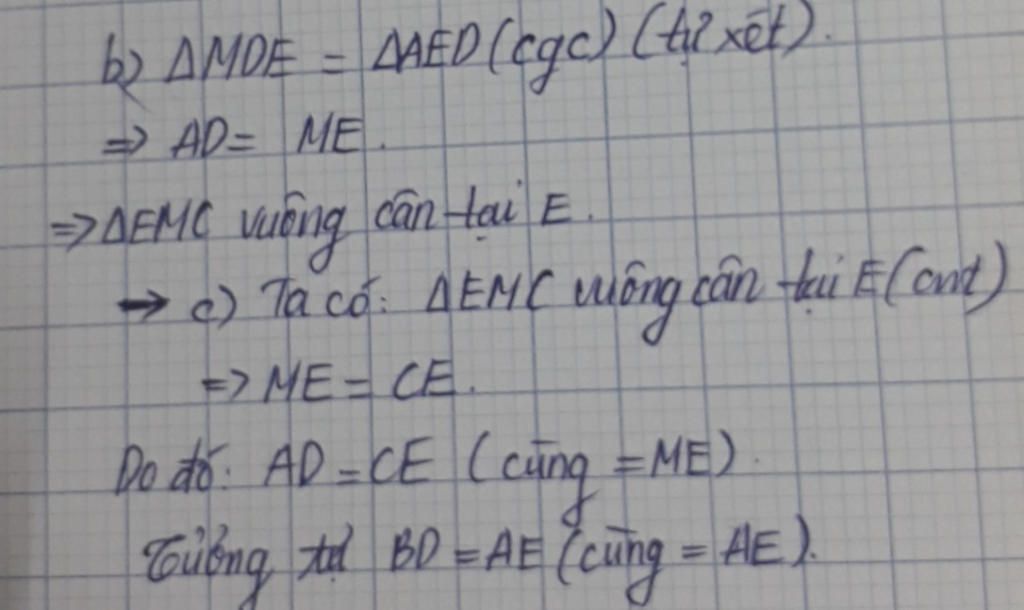 b) ΔMDE = ΔAED (cgc) (tự xét).
=> AD = ME.
=> ΔEMC vuông cân tại E.
→ c) Ta có: ΔEMC vuông cân tại E (cmt)
=> ME = CE.
Do đó: AD = CE (cùng = ME).
Tương tự BD = AE (cùng = AE).